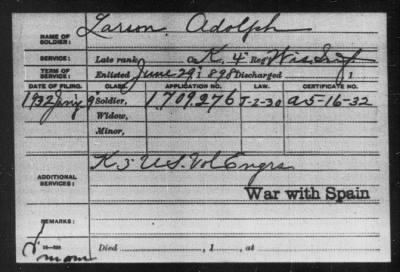 NAME OF SOLDIER: Larson, Adolph
SERVICE: Late rank, Co. K, 4" Reg't Wis. Inf.
TERM OF SERVICE: Enlisted June 29, 1898 Discharged , 1
DATE OF FILING. CLASS. APPLICATION NO. LAW. CERTIFICATE NO.
1932 Soldier, 1709276 J-2-30 a5-16-32
Widow,
Minor,
ADDITIONAL SERVICES: K 3 U.S. Vol Engrs
War with Spain
REMARKS:
Died , 1 , at